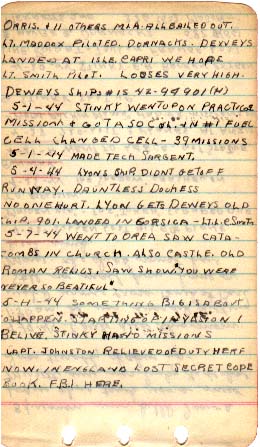 ORRIS. & 11 OTHERS M.I.A. ALL BAILED OUT.
LT. MADDOX PILOTED. DORNACKS. DEWEYS
LANDED AT ISLE CAPRI WE HOPE
LT. SMITH PILOT. LOUSES VERY HIGH.
DEWEYS SHIPS #IS 42-94901 (H)
5-1-44 STINKY WENT UP ON PRACTICE
MISSION & GOT A 50 CAL. IN #1 FUEL
CELL CHANGED CELL - 39 MISSIONS
5-1-44 MADE TECH SARGENT.
5-4-44 LYONS SHIP DIDNT GET OFF
RUNWAY. DAUNTLESS DUCHESS
NO ONE HURT. LYON GETS DEWEYS OLD
SHIP. 901. LANDED IN CORSICA - Lt. L. Smith
5-7-44 WENT TO OREA SAW CATA-
COMBS IN CHURCH. ALSO CASTLE. OLD
ROMAN RELICS. SAW SHOW "YOU WERE
NEVER SO BEATIFUL"
5-11-44 SOMETHING BIG IS ABOUT
TO HAPPEN. STARTING OF INVASION I
BELIVE. STINKY HAS MISSIONS
CAPT. JOHNSTON RELIEVED OF DUTY HERE
NOW. IN ENGLAND LOST SECRET CODE
BOOK. F.B.I. HERE.